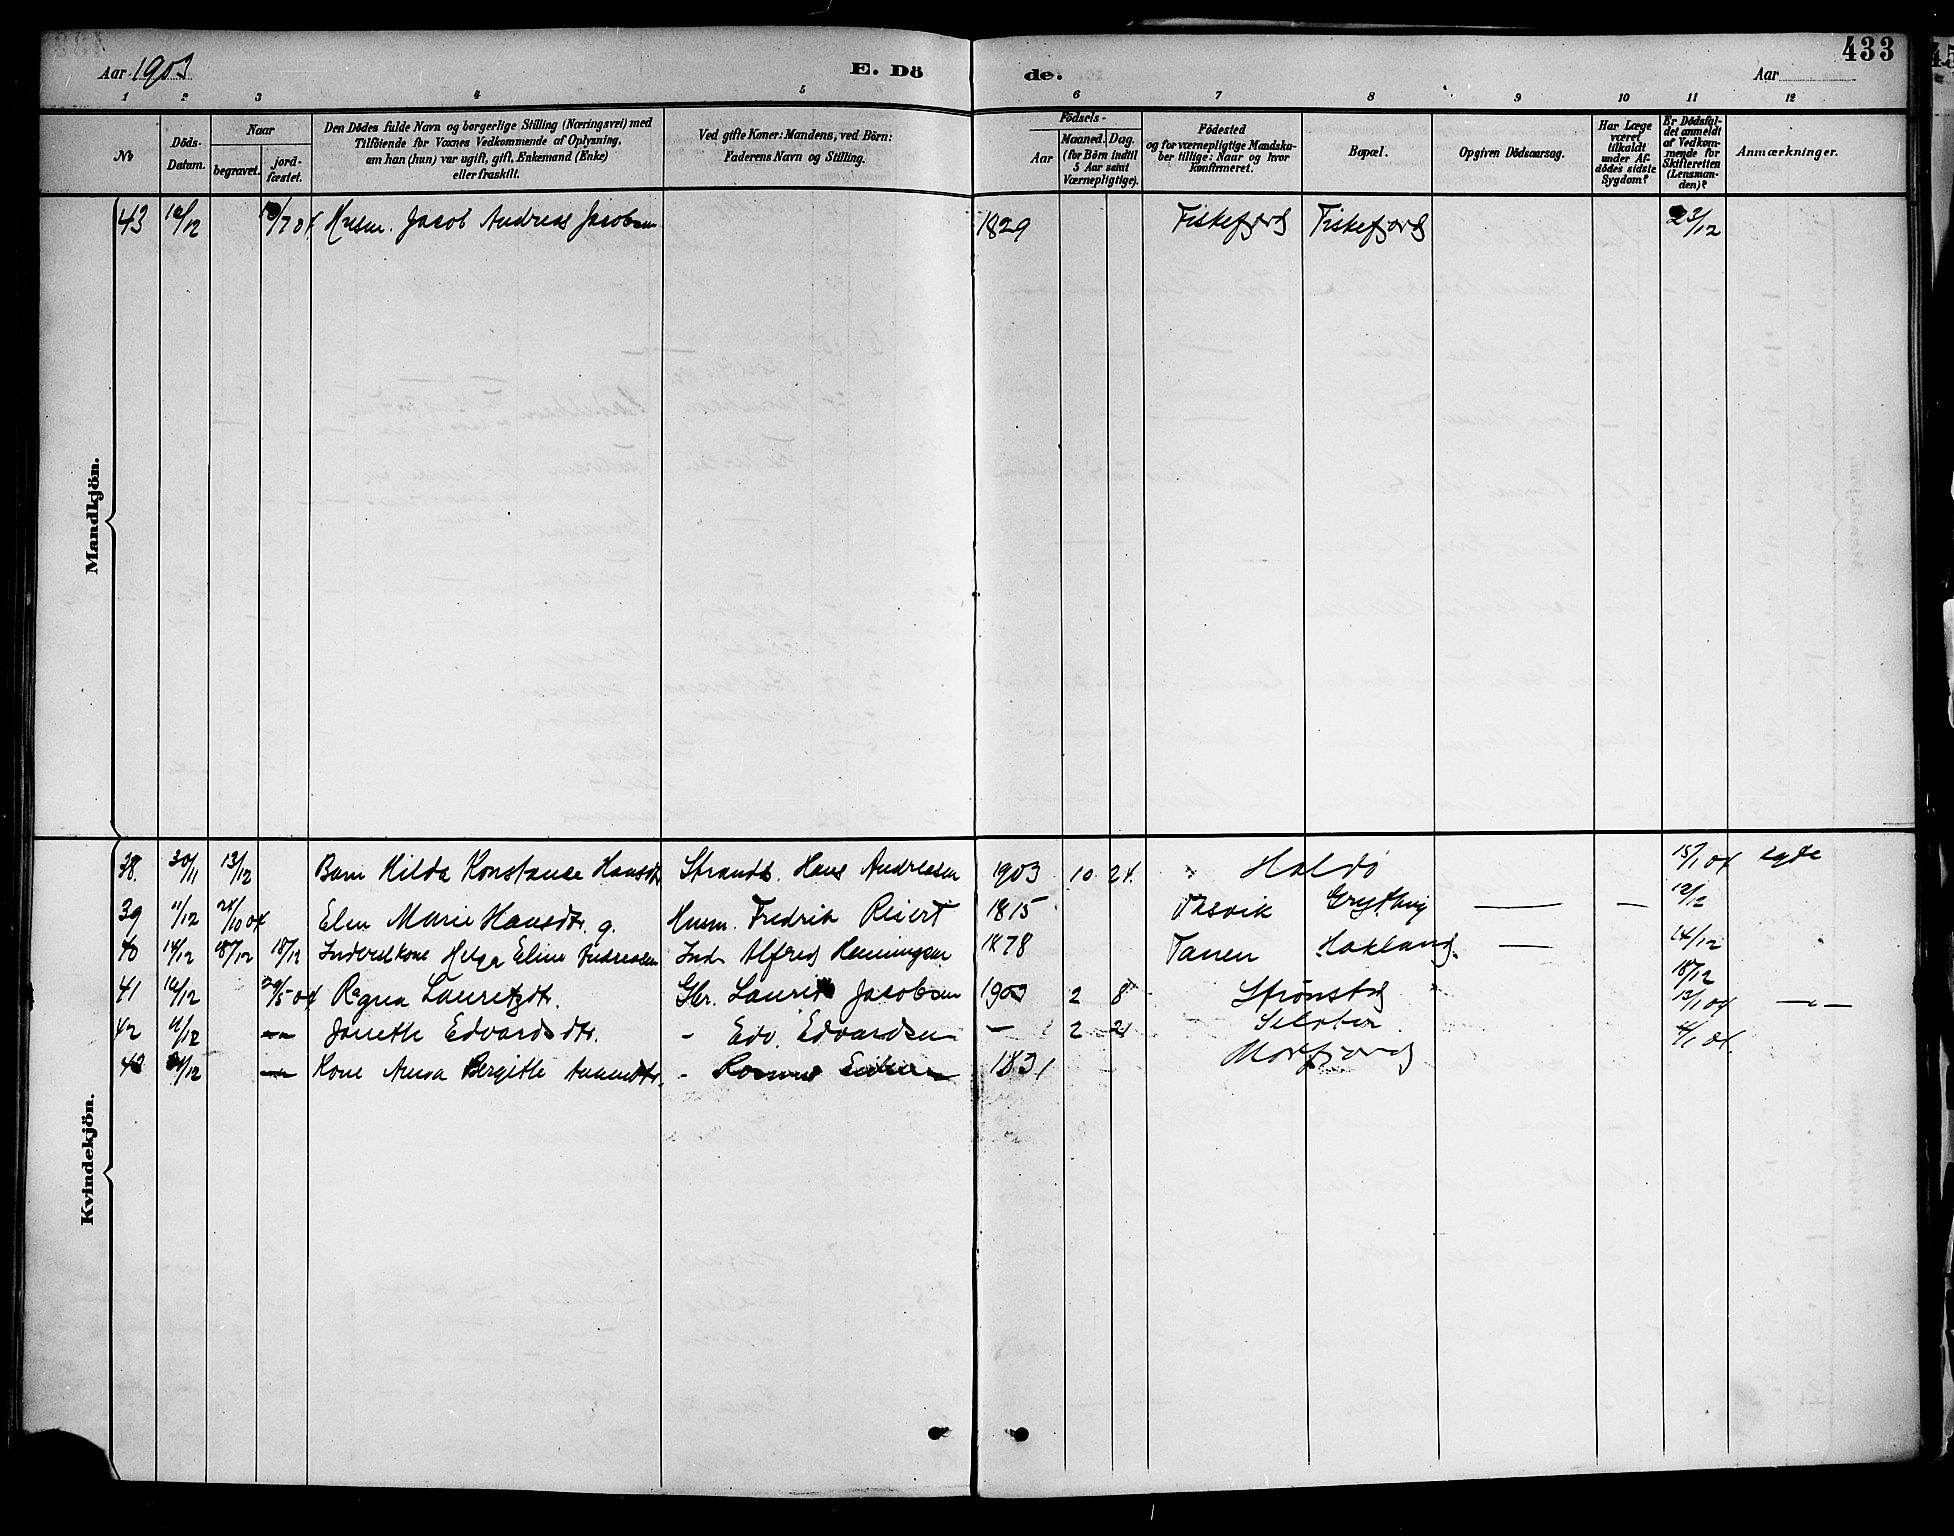 433
Aar 1903
E. Dö
de.
Aar
1 2 3 4 5 6 7 8 9 10 11 12
No
Döds-Datum.
Naar
begravet.
jord-fæstet.
Den Dödes fulde Navn og borgerlige Stilling (Næringsvei) med
Tilföiende for Voxnes Vedkommende af Oplysning,
om han (hun) var ugift, gift, Enkemand (Enke)
eller fraskilt.
Ved gifte Koner: Mandens, ved Börn:
Faderens Navn og Stilling.
Födsels-
Aar
Maaned. Dag.
(for Börn indtil
5 Aar samt
Værnepligtige).
Födested
og for værnepligtige Mandska-
ber tillige: Naar og hvor
konfirmeret.
Bopæl.
Opgiven Dödsaarsag.
Har Læge
været
tilkaldt
under Af-
dödes sidste
Sygdom?
Er Dödsfal-
det anmeldt
af Vedkom-
mende for
Skifteretten
(Lensman-
den)?
Anmærkninger.
Mandkjön.
43 16/12 /7 04 Husm. Jacob Andreas Jacobsen 1829 Fiskefjord Fiskefjord 23/12
Kvindekjön.
38. 30/11 13/12 Barn Hilda Konstanse Hansdtr Strands. Hans Andreasen 1903 10 24. " Haldö 15/1 04 syde
39 11/12 24/10 04 Elen Marie Hansdtr. g. Husm. Fredrik Reiert 1815 Grytting — — 12/12
40 14/12 18/12 18/12 Inderstkone Helga Eline Andreasen Ind. Alfred Henningsen 1878 Tanen Hokland. — 14/12
41 16/12 29/5 04 Ragna Lauritzdtr. Gbr. Laurits Jacobsen 1903 2 8 Strønstad " 18/12
42 11/12 — Janette Edvardsdtr. - Edv. Edvardsen — 2 21 13/1 04 —"—
43 /12 — Kone Anna Bergitte - 1831 Morfjord 4/1 04.